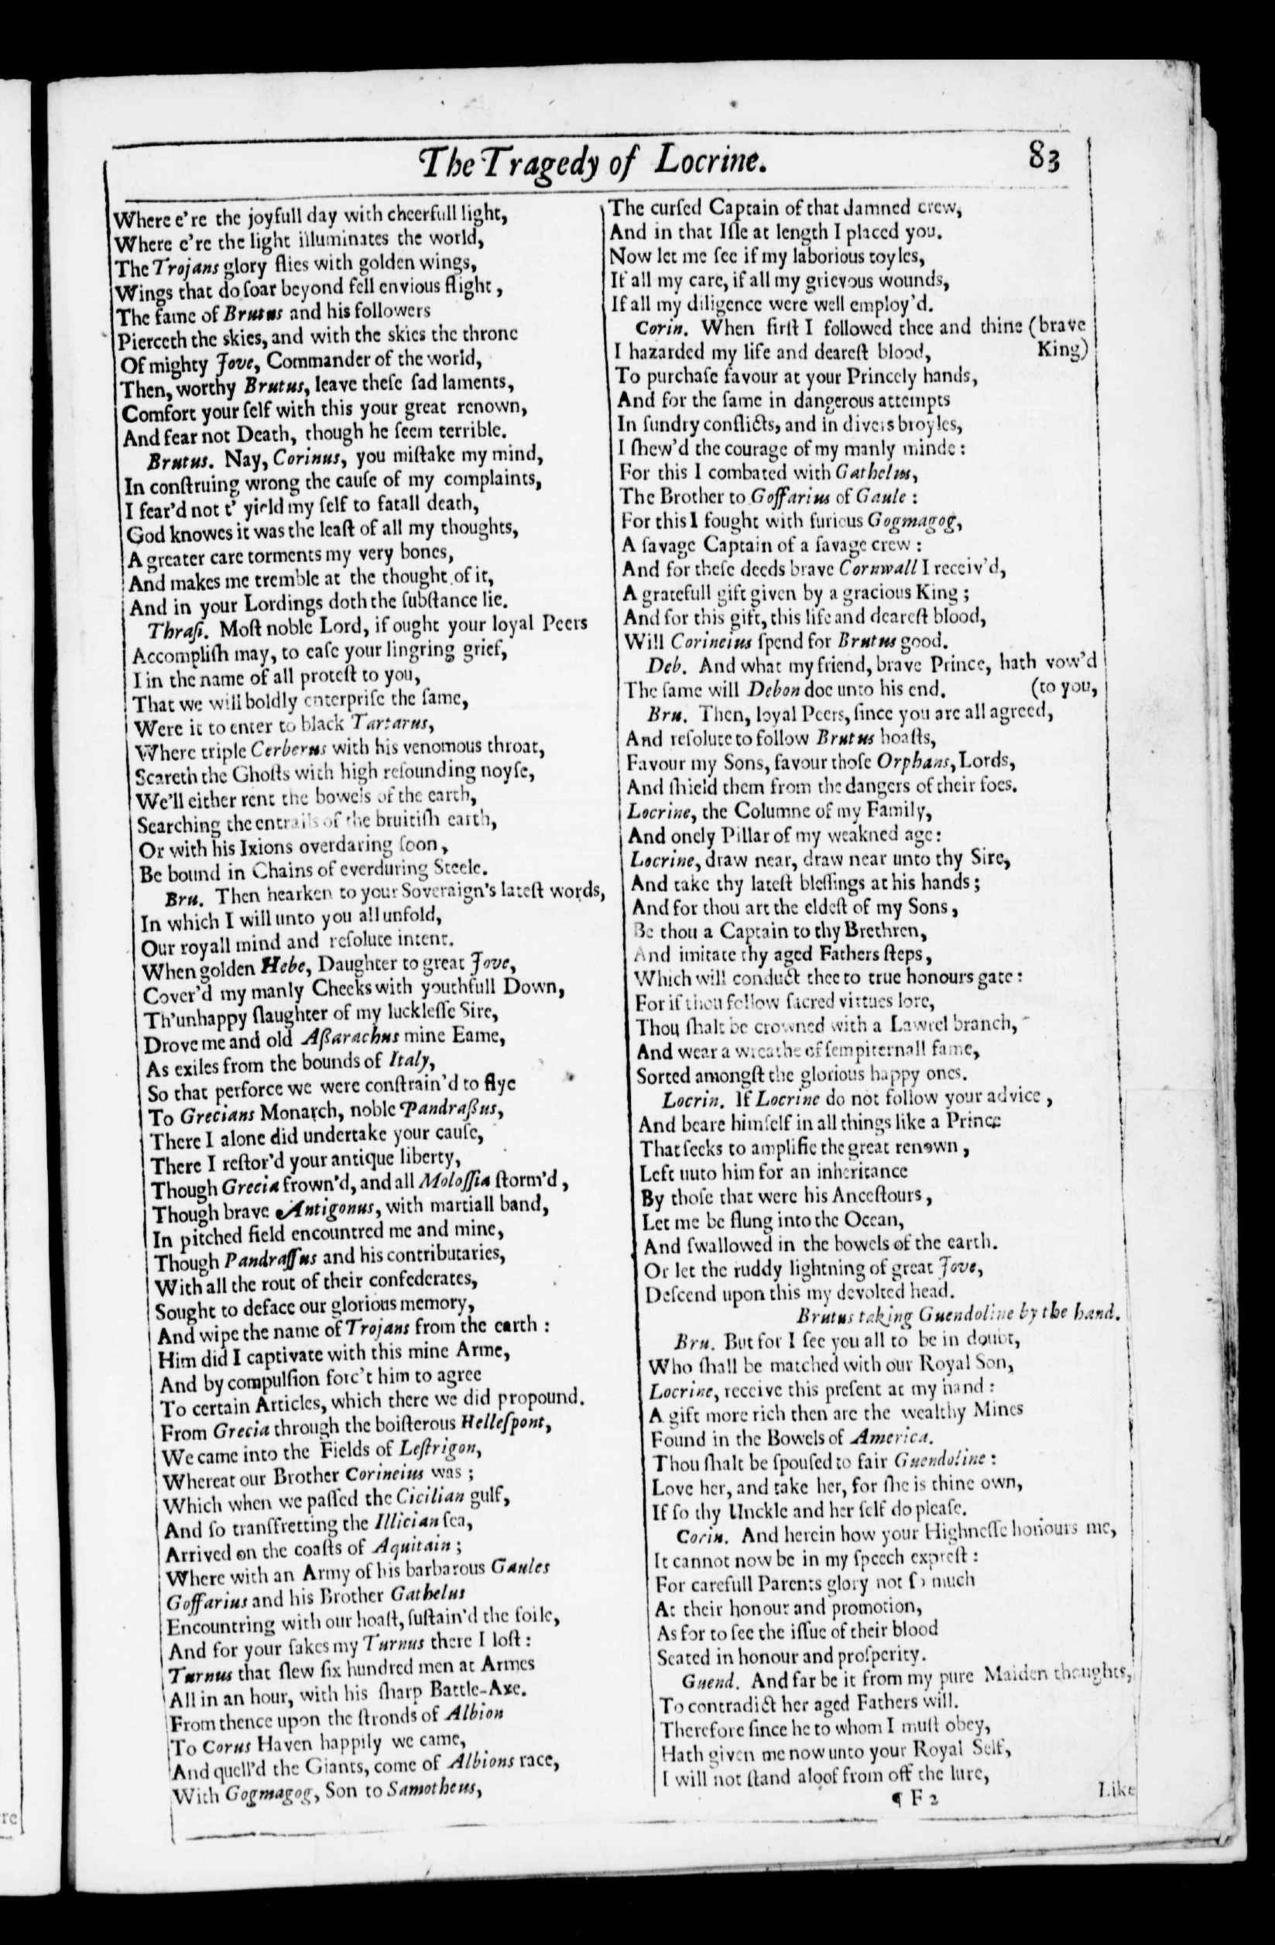 The Tragedy of Locrine. 83
Where e're the joyfull day with cheerfull light,
Where e're the light illuminates the world,
The Trojans glory flies with golden wings,
Wings that do soar beyond fell envious flight,
The fame of Brutus and his followers
Pierceth the skies, and with the skies the throne
Of mighty Jove, Commander of the world,
Then, worthy Brutus, leave these sad laments,
Comfort your self with this your great renown,
And fear not Death, though he seem terrible.
Brutus. Nay, Corinus, you mistake my mind,
In construing wrong the cause of my complaints,
I fear'd not t' yield my self to fatall death,
God knowes it was the least of all my thoughts,
A greater care torments my very bones,
And makes me tremble at the thought of it,
And in your Lordings doth the substance lie.
Thrasi. Most noble Lord, if ought your loyal Peers
Accomplish may, to ease your lingring grief,
I in the name of all protest to you,
That we will boldly enterprise the same,
Were it to enter to black Tartarus,
Where triple Cerberus with his venomous throat,
Scareth the Ghosts with high resounding noyse,
We'll either rent the bowels of the earth,
Searching the entrails of the bruitish earth,
Or with his Ixions overdaring soon,
Be bound in Chains of everduring Steele.
Bru. Then hearken to your Soveraign's latest words,
In which I will unto you all unfold,
Our royall mind and resolute intent.
When golden Hebe, Daughter to great Jove,
Cover'd my manly Cheeks with youthfull Down,
Th'unhappy slaughter of my lucklesse Sire,
Drove me and old Aßarachus mine Eame,
As exiles from the bounds of Italy,
So that perforce we were constrain'd to flye
To Grecians Monarch, noble Pandraßus,
There I alone did undertake your cause,
There I restor'd your antique liberty,
Though Grecia frown'd, and all Molossia storm'd,
Though brave Antigonus, with martiall band,
In pitched field encountred me and mine,
Though Pandrassus and his contributaries,
With all the rout of their confederates,
Sought to deface our glorious memory,
And wipe the name of Trojans from the earth:
Him did I captivate with this mine Arme,
And by compulsion forc't him to agree
To certain Articles, which there we did propound.
From Grecia through the boisterous Hellespont,
We came into the Fields of Lestrigon,
Whereat our Brother Corineius was;
Which when we passed the Cicilian gulf,
And so transfretting the Illician sea,
Arrived on the coasts of Aquitain;
Where with an Army of his barbarous Gaules
Goffarius and his Brother Gathelus
Encountring with our hoast, sustain'd the foile,
And for your sakes my Turnus there I lost:
Turnus that slew six hundred men at Armes
All in an hour, with his sharp Battle-Axe.
From thence upon the stronds of Albion
To Corus Haven happily we came,
And quell'd the Giants, come of Albions race,
With Gogmagog, Son to Samotheus,
The cursed Captain of that damned crew,
And in that Isle at length I placed you.
Now let me see if my laborious toyles,
If all my care, if all my grievous wounds,
If all my diligence were well employ'd.
Corin. When first I followed thee and thine (brave
I hazarded my life and dearest blood, King)
To purchase favour at your Princely hands,
And for the same in dangerous attempts
In sundry conflicts, and in divers broyles,
I shew'd the courage of my manly minde:
For this I combated with Gathelus,
The Brother to Goffarius of Gaule:
For this I fought with furious Gogmagog,
A savage Captain of a savage crew:
And for these deeds brave Cornwall I receiv'd,
A gratefull gift given by a gracious King;
And for this gift, this life and dearest blood,
Will Corineius spend for Brutus good.
Deb. And what my friend, brave Prince, hath vow'd
The same will Debon doe unto his end. (to you,
Bru. Then, loyal Peers, since you are all agreed,
And resolute to follow Brutus hoasts,
Favour my Sons, favour those Orphans, Lords,
And shield them from the dangers of their foes.
Locrine, the Columne of my Family,
And onely Pillar of my weakned age:
Locrine, draw near, draw near unto thy Sire,
And take thy latest blessings at his hands;
And for thou art the eldest of my Sons,
Be thou a Captain to thy Brethren,
And imitate thy aged Fathers steps,
Which will conduct thee to true honours gate:
For if thou follow sacred virtues lore,
Thou shalt be crowned with a Lawrel branch,
And wear a wreathe of sempiternall fame,
Sorted amongst the glorious happy ones.
Locrin. If Locrine do not follow your advice,
And beare himself in all things like a Prince
That seeks to amplifie the great renown,
Left uuto him for an inheritance
By those that were his Ancestours,
Let me be flung into the Ocean,
And swallowed in the bowels of the earth.
Or let the ruddy lightning of great Jove,
Descend upon this my devolted head.
Brutus taking Guendoline by the hand.
Bru. But for I see you all to be in doubt,
Who shall be matched with our Royal Son,
Locrine, receive this present at my hand:
A gift more rich then are the wealthy Mines
Found in the Bowels of America.
Thou shalt be spoused to fair Guendoline:
Love her, and take her, for she is thine own,
If so thy Unckle and her self do please.
Corin. And herein how your Highnesse honours me,
It cannot now be in my speech exprest:
For carefull Parents glory not so much
At their honour and promotion,
As for to see the issue of their blood
Seated in honour and prosperity.
Guend. And far be it from my pure Maiden thoughts,
To contradict her aged Fathers will.
Therefore since he to whom I must obey,
Hath given me now unto your Royal Self,
I will not stand aloof from off the lure,
¶ F 2 Like